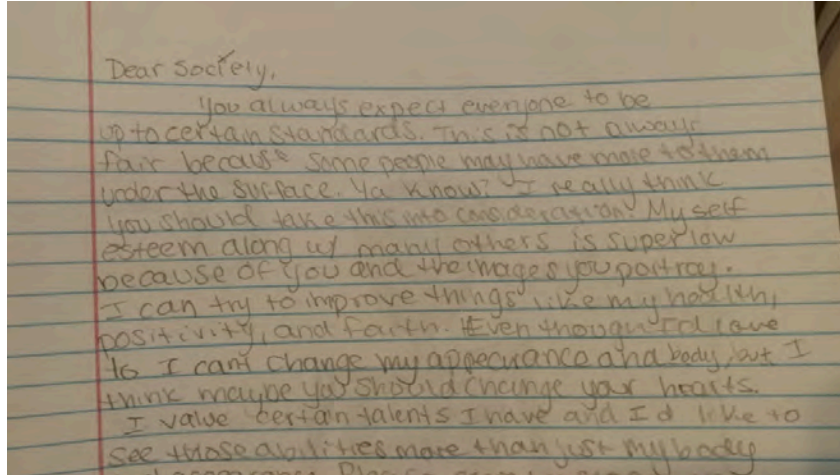 Dear Society,
You always expect everyone to be
up to certain standards. This is not always
fair because some people may have more to them
under the surface. Ya know? I really think
you should take this into consideration. My self
esteem along w/ many others is super low
because of you and the images you portray.
I can try to improve things like my health,
positivity, and faith. Even though I'd love
to I cant change my appearance and body, but I
think maybe you should change your hearts.
I value certain talents I have and I'd like to
see those abilities more than just my body
appearance. Please